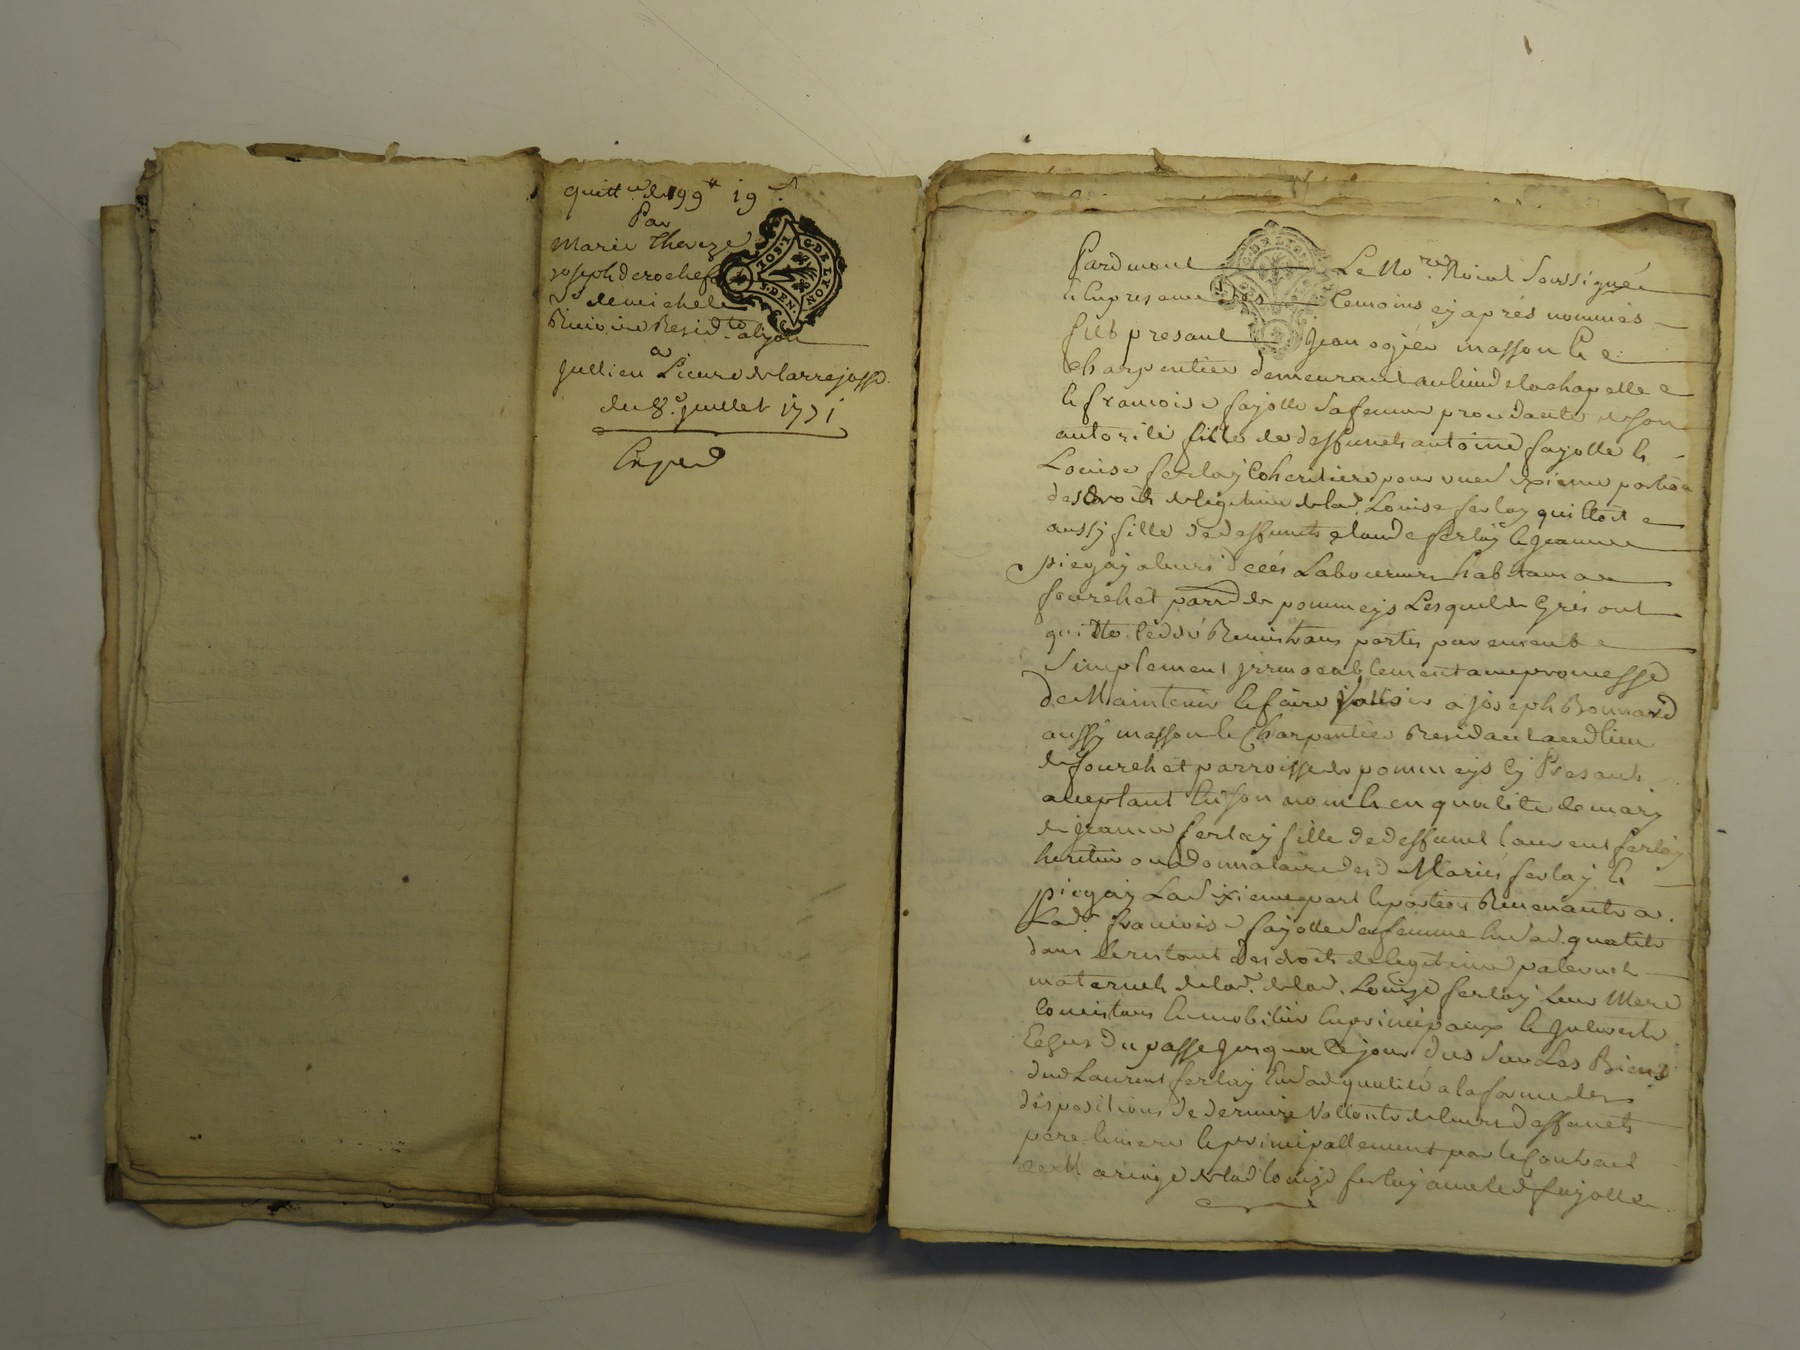 quitt.ce de 199# 19 s.
Par
Marie Thereze
joseph de rochefo
Se de michelle
Resid.te alyon
a
Jullien Pierre de larrejasse
du 8.e juillet 1771
Exped
G. DE LYON
3. DEN.
Pardevant Le No.re Roial Soussigné
& En presence Des temoins cy après nommés
fut presant Jean ogier masson & e
Charpentier demeurant au lieu de la chapelle e
& francoise fajolle Sa femme procedante de son
autorité fille de deffunets antoine fajolle &
Louise ferlay Coheritiere pour une sixieme portion
des droits de legitime de lad. Louise ferlay quittoit e
aussy fille de deffunets Claude ferlay & Jeanne
piegay a leurs deces Laboureurs habitans au
fourchet parr.e de pommeys Lesquels de Grés ont
quitté cédé Remis transportés purement &
Simplement jrrevocablement avec promesse
De Maintenir & faire jouir a joseph Bonnard
aussy masson & Charpentier Residant aud lieu
de fourchet parroisse de pommeys Cy Presant
acceptant En son nom & en qualité de mary
de jeanne ferlay fille de deffunt laurent ferlay
heritier ou donnataire desd Mariés ferlay &
piegay La Sixieme part & portion Revenante a
Lad.e francoise fajolle Sa femme En lad. qualité
dans Le restant des droits de legitime paternels
maternels de lad. de lad. Louise ferlay Leur Mere
Consistans En mobilier En principaux & jnterests
Echus du passé jusqua Ce jour dus Sur Les Biens
dud Laurent ferlay En lad qualité a la forme des
dispositions de derniere Vollonté de leurs deffunets
père & mere & principallement par le Contract
de Mariage de lad louise ferlay avec led fajolle